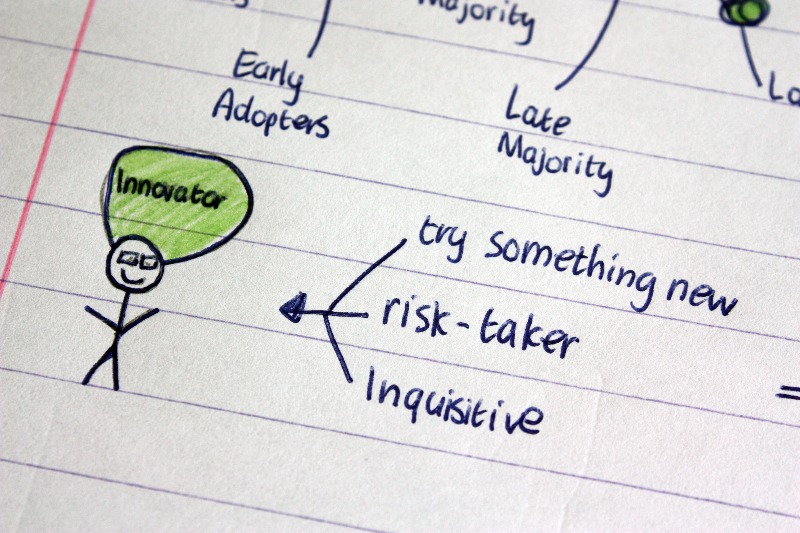 Majority
Early
Adopters
Late
Majority
La
Innovator
try something new
risk-taker
Inquisitive
=